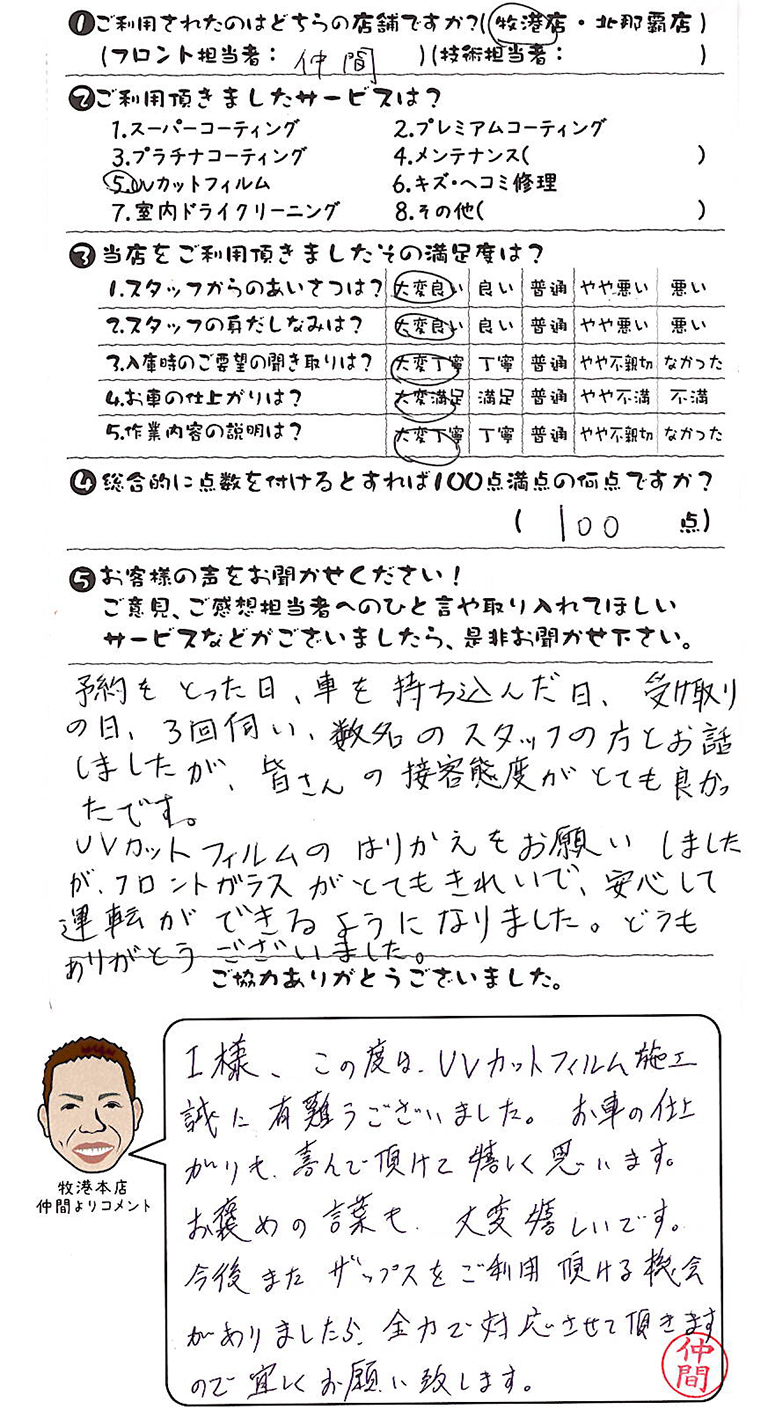 ❶ご利用されたのはどちらの店舗ですか?(牧港店・北那覇店)
(フロント担当者: 仲間 )(技術担当者: )
❷ご利用頂きましたサービスは?
1.スーパーコーティング 2.プレミアムコーティング
3.プラチナコーティング 4.メンテナンス( )
5.UVカットフィルム 6.キズ・ヘコミ修理
7.室内ドライクリーニング 8.その他( )
❸当店をご利用頂きましたその満足度は?
1.スタッフからのあいさつは? 大変良い 良い 普通 やや悪い 悪い
2.スタッフの身だしなみは? 大変良い 良い 普通 やや悪い 悪い
3.入庫時のご要望の聞き取りは? 大変丁寧 丁寧 普通 やや不親切 なかった
4.お車の仕上がりは? 大変満足 満足 普通 やや不満 不満
5.作業内容の説明は? 大変丁寧 丁寧 普通 やや不親切 なかった
❹総合的に点数を付けるとすれば100点満点の何点ですか?
( 100 点)
❺お客様の声をお聞かせください!
ご意見、ご感想担当者へのひと言や取り入れてほしい
サービスなどがございましたら、是非お聞かせ下さい。
予約をとった日、車を持ち込んだ日、受け取り
の日、3回伺い、数名のスタッフの方とお話
しましたが、皆さんの接客態度がとても良かっ
たです。
UVカットフィルムのはりかえをお願いしました
が、フロントガラスがとてもきれいで、安心して
運転ができるようになりました。どうも
ありがとうございました。
ご協力ありがとうございました。
I様、この度は、UVカットフィルム施工
誠に有難うございました。お車の仕上
がりも、喜んで頂けて嬉しく思います。
お褒めの言葉も、大変嬉しいです。
今後またザップスをご利用頂ける機会
がありましたら、全力で対応させて頂きます
ので宜しくお願い致します。
牧港本店
仲間よりコメント
仲間